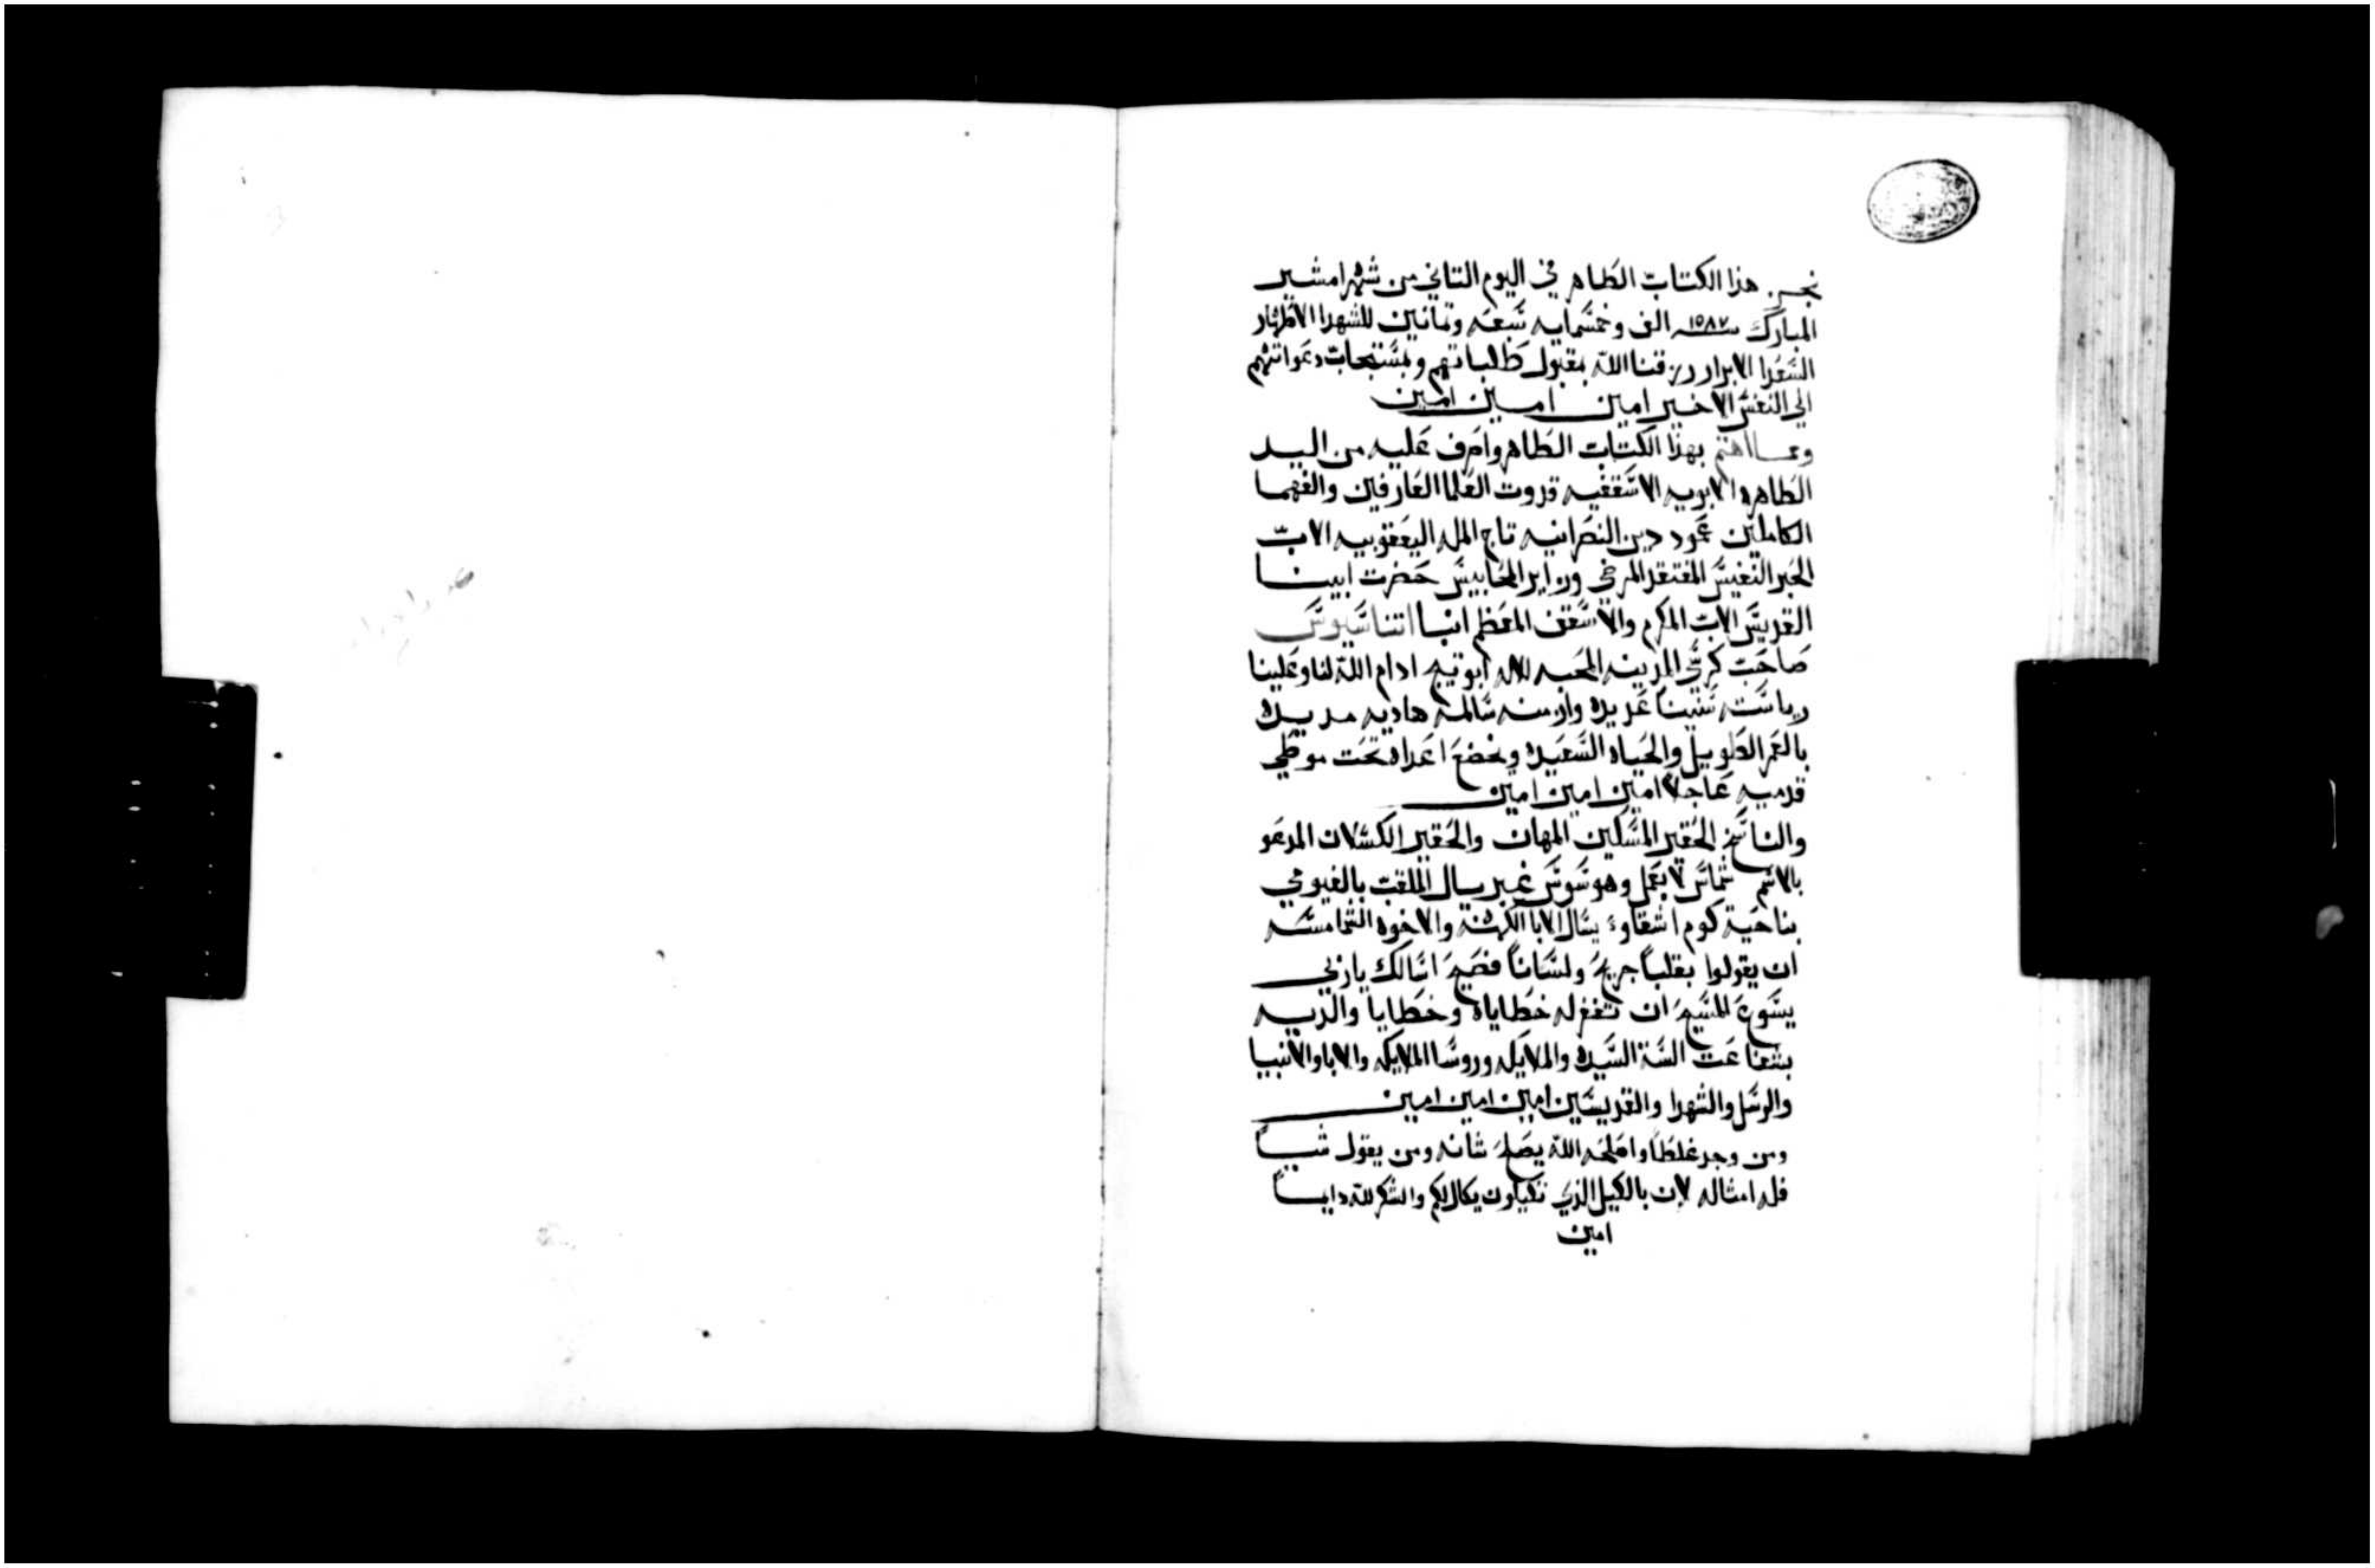 نجز هذا الكتاب الطاهر في اليوم التاني من شهر امشير
المبارك سنة ١٥٨٧ الف وخمسمايه سبعه وتمانين للشهدا الاطهار
السعدا الابرار رزقنا الله بقبول طلباتهم ومستجاب دعواتهم
الي النفس الاخير امين امين امين
ومما اهتم بهذا الكتاب الطاهر واصرف عليه من اليد
الطاهره الابويه الاسقفيه قدوت العلما العارفين والفهما
الكاملين عمود دين النصرانيه تاج المله اليعقوبيه الاب
الحبر النفيس المفتقد المرضي وزاير المحابيس حضرت ابينا
القديس الاب المكرم والاسقف المعظم انبا اتناسيوس
صاحب كرسي المدينه المحبه للاله ابوتيج ادام الله لنا وعلينا
رياسته سنينا عديده وازمنه سالمه هاديه مديده
بالعمر الطويل والحياه السعيده ويخضع اعداه تحت موطي
قدميه عاجلا امين امين امين
والناسخ الحقير المسكين المهان والحقير الكسلان المدعو
بالاسم شماس لا بعمل وهو سوس غبريال الملقب بالفيومي
بناحية كوم اشقاو يسال الابا الكهنه والاخوه الشمامسه
ان يقولوا بقلباً جريح ولساناً فصيح اسالك ياربي
يسوع المسيح ان تغفر له خطاياه وخطايا والديه
بشفاعت الستة السيده والملايكه وروسا الملايكه والابا والانبيا
والرسل والشهدا والقديسين امين امين امين
ومن وجد غلطا واصلحه الله يصلح شانه ومن يقول شياً
فله امثاله لان بالكيل الذي تكيلون يكال لكم والشكر لله دايماً
امين